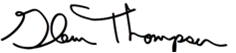 Glenn Thompson